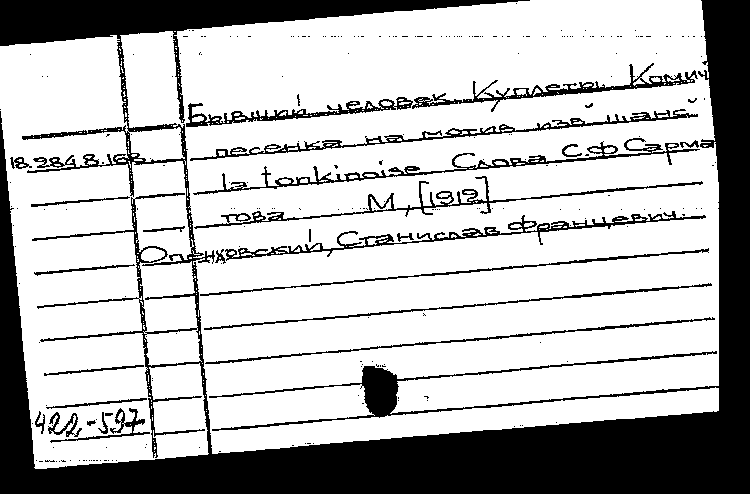 Бывший человек. Куплеты. Комич.
18.284.8.168. песенка на мотив изв. шанс.
la tonkinoise Слова С.Ф Сарма
това. М., [1912]
Опенховский, Станислав Францевич.
422,-597